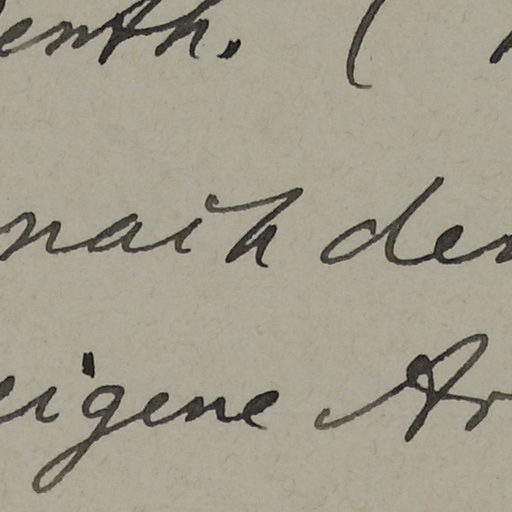 enth. (
nach den
eigene Ar